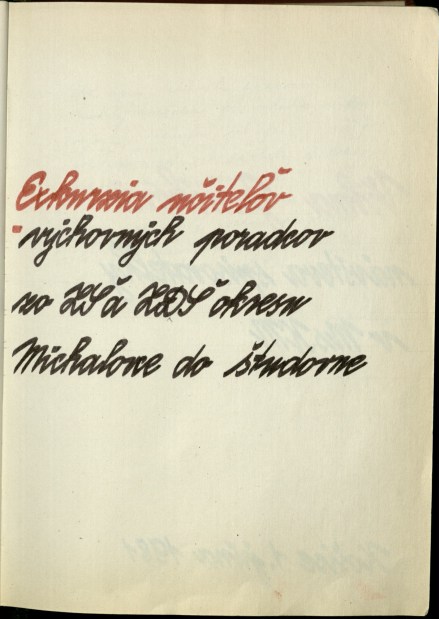 Exkurzia učiteľov
-výchovných poradcov
zo ZŠ a ZDŠ okresu
Michalovce do študovne